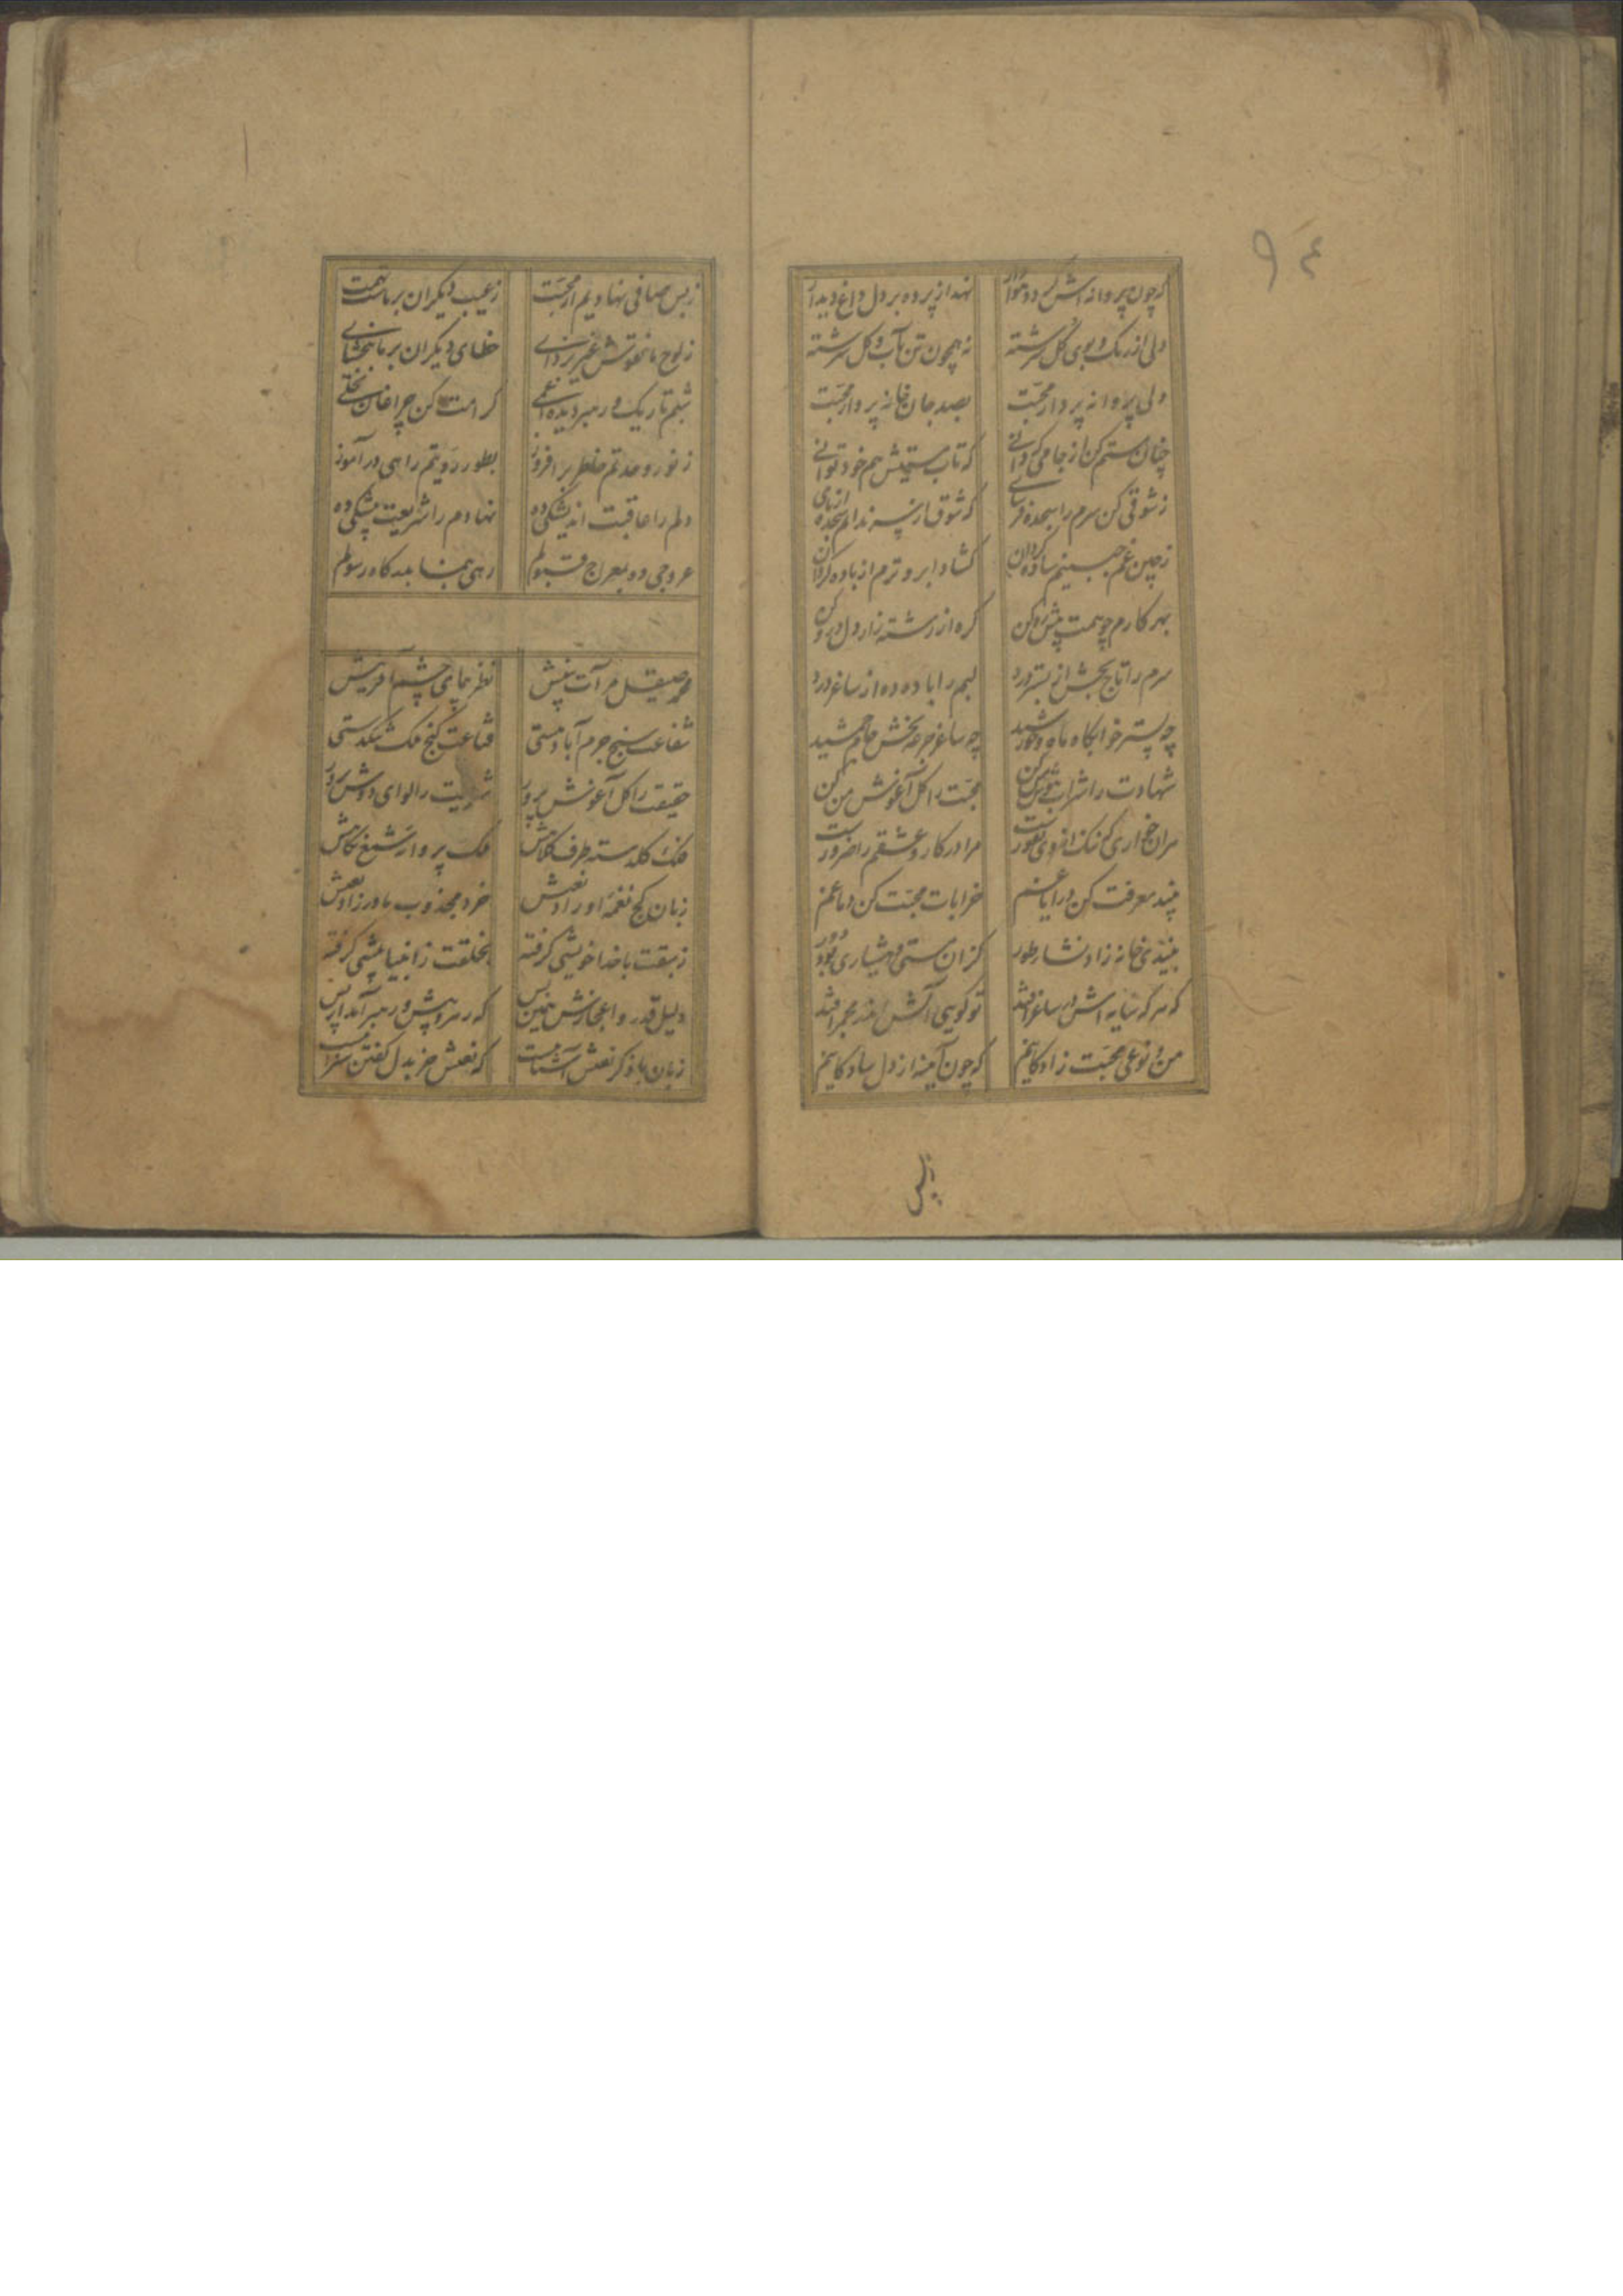 ۹۴
که چون پروانه اش گردد هوادار نهد از پرده بر دل داغ دیدار
دلی از رنگ و بوی گل سرشته نه همچون تن بآب و گل سرشته
دلی پروانه پرداز محبت بصد جان خانه پرداز محبت
چنان مستم کن از جامی که دانی که تاب مستیش هم خود توانی
ز شوقی کن سرم را سجده فرسای که شوق از سر نداند سجده از پای
ز چین غم جبینم ساده گردان گشاد ابروترم از باده گردان
بهر کارم چو همت پیش رو کن گره از رشته زار دل
سرم را تاج بخش از بستر درد لبم را باده ده از ساغر درد
چه بستر خوابگاه ماه و خورشید چه ساغر جرعه بخش جام جمشید
شهادت را شراب نوش من کن محبت را گل آغوش من کن
مرا در کار و عشقم را ضرورست
معرفت کن در ایاغم خرابات محبت کن دماغم
خانه زاد نشاء طور کزان مستی و هشیاری بود دور
که هر که سایه اش بر ساغر افتد تو گویی آتش اندر مجمر افتد
من و نوعی محبت زادگانیم که چون آیینه از دل سادگانیم
زبس
زبس صافی نهادیم از محبت ز عیب دیگران بر ماست تهمت
ز لوح ما نقوش غیر بزدای خطای دیگران بر ما ببخشای
شبم تاریک و رهبر دیده اعمی کرامت کن چراغان تجلی
ز نور وحدتم خاطر برافروز بطور رویتم راهی درآموز
دلم را عاقبت اندیشگی ده نهادم را شریعت پیشگی ده
عروجی ده بمعراج قبولم رهی بنما بدرگاه رسولم
محمد صیقل مرآت بینش نظر پیمای چشم آفرینش
شفاعت سنج جرم آباد هستی قناعت گنج ملک تنگدستی
حقیقت را گل آغوش پرور شریعت را لوای دوش پرور
فلک گلدسته طرف کلاهش ملک پرواز شمع نگاهش
زبان گنج نغمه اوراد نعتش خرد مجذوب مادرزاد نعتش
ز سبقت با خدا خویشی گرفته بخلقت ز انبیا پیشی گرفته
دلیل قدر و اعجازش همین بس که رهرو پیش و رهبر آمد از پس
زبان با ذکر نعتش آشنا نیست که نعتش جز بدل گفتن سزا نیست